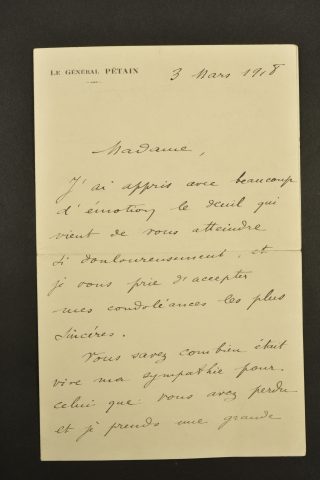 LE GÉNÉRAL PÉTAIN
3 Mars 1918
Madame,
J'ai appris avec beaucoup
d'émotion le deuil qui
vient de vous atteindre
si douloureusement, et
je vous prie d'accepter
mes condoléances les plus
sincères.
Vous savez combien était
vive ma sympathie pour
celui que vous avez perdu
et je prends une grande